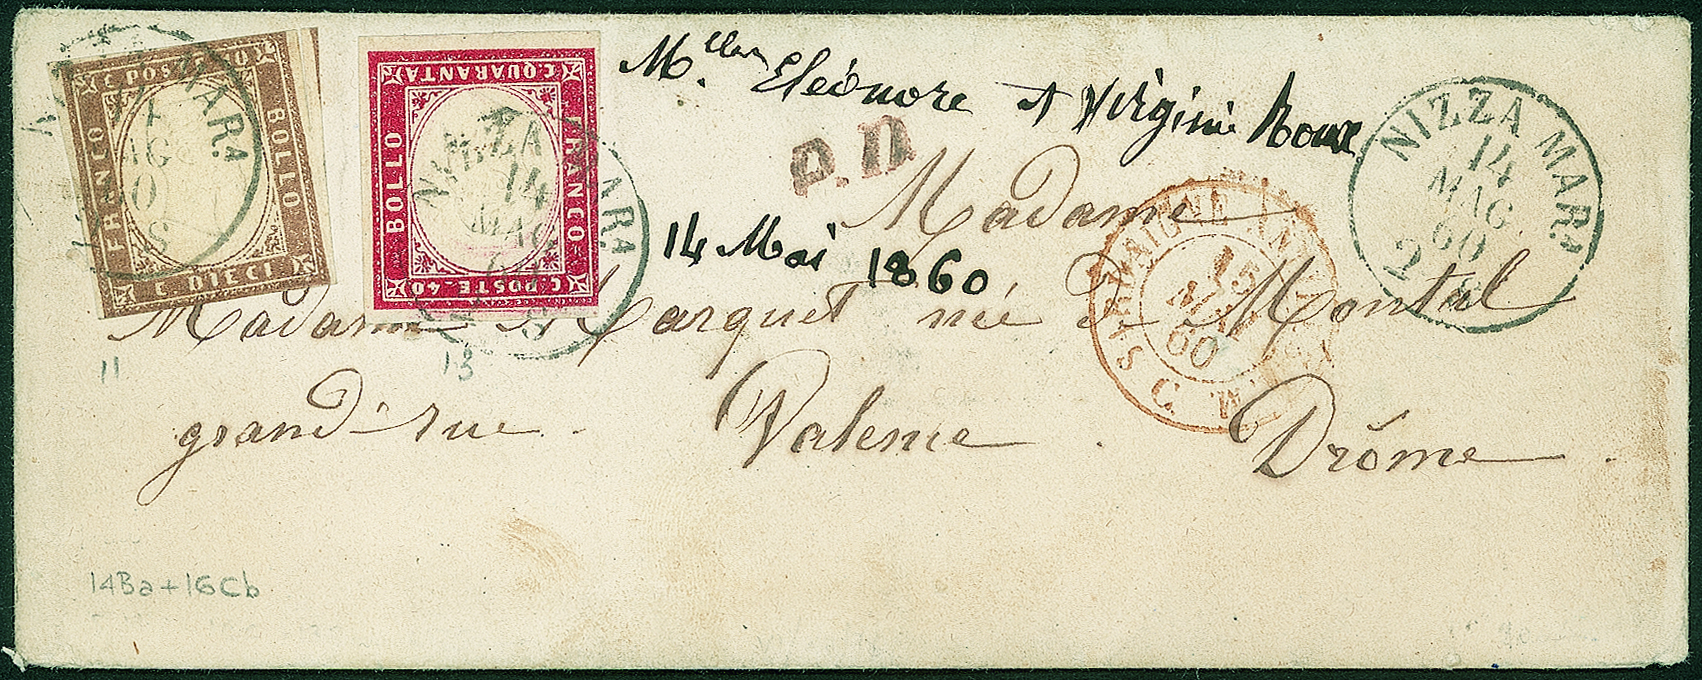 C. POSTE. 10
FRANCO
BOLLO
C. DIECI
C. QUARANTA
BOLLO
FRANCO
C. POSTE. 40
NIZZA MAR.A
14
MAG.
60
Mlles Eléonore et Virginie Roux
P.D.
14 Mai 1860.
NIZZA MAR.A
14
MAG.
60
2 S
SARDAIGNE
15
MAI
60
Madame
Madame Marquet née de Montal
grand-rue. Valence. Drôme.
11
13
14Ba+16Cb